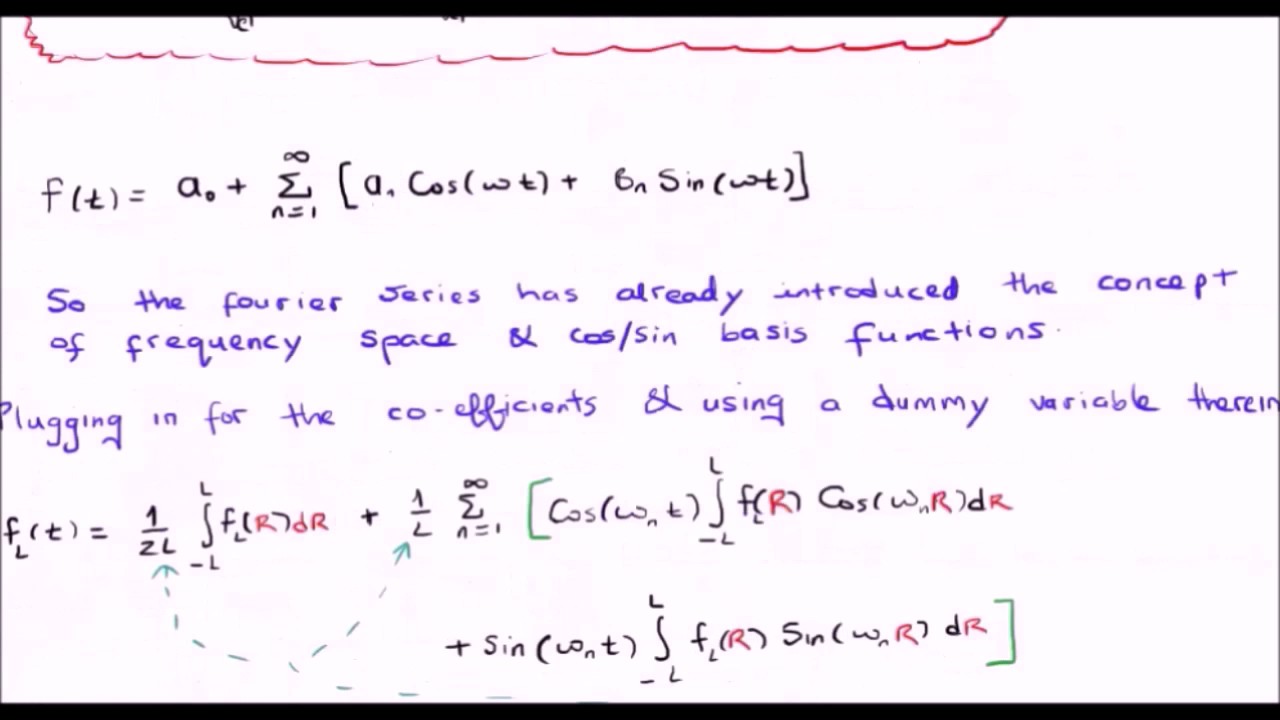 f(t) = a₀ + ∞ Σ n=1 [aₙ Cos(ωt) + bₙ Sin(ωt)]
So the fourier series has already introduced the concept
of frequency space & cos/sin basis functions.
Plugging in for the co-efficients & using a dummy variable therein
f_L(t) = 1/2L ∫_{-L}^{L} f_L(R)dR + 1/L Σ_{n=1}^{∞} [Cos(ωₙt) ∫_{-L}^{L} f_L(R) Cos(ωₙR)dR
+ Sin(ωₙt) ∫_{-L}^{L} f_L(R) Sin(ωₙR) dR]